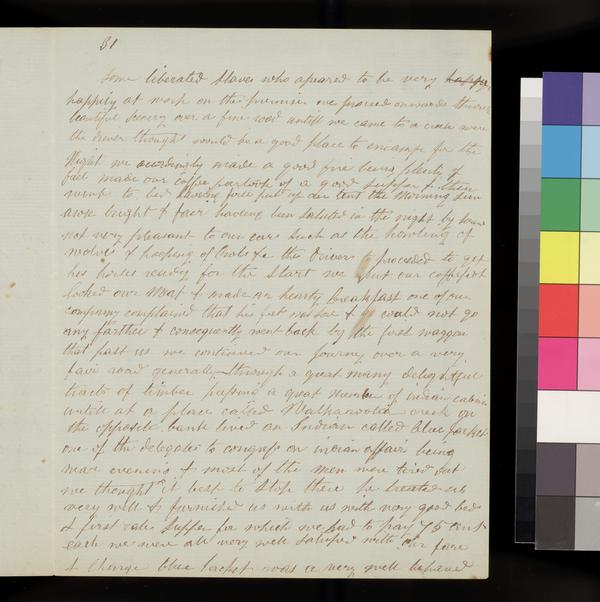 31
Some liberated Slaves who apeared to be very happy
happily at work on the premises we proceed onwards through
beautiful scenery over a fine road untill we came to a creek were
the driver thought would be a good place to encamp for the
Night we acordingly made a good fire being plenty of
fuel made our coffee partook of a good supper & then
went to bed having first put up our tent the Morning Sun
arose bright & fair having been saluted in the night by
not very pleasant to our ears such as the howling of
wolves & hooping of Owls &c the Drivers proceded to get
his horses ready for the start we put our coffepot
looked our Meat & made an hearty breakfast one of our
company complained that his feet was sore & could not go
any farther & consequently went back by the first waggon
that past us we continued our journey over a very
fair road generally through a great many delightful
tracts of timber passing a great number of indian cabins
untill at a place called creek on
the opposite bank lived an Indian called Blue Jacket
one of the delegates to congress on indian affairs being
near evening & most of the men were tired out
we thought it best to stop there he treated us
very well & furnished us with us with very good beds
& first rate supper for which we had to pay 75 cents
each we were all very well satisfied with our fare
& Charge blue Jacket was a very well behaved